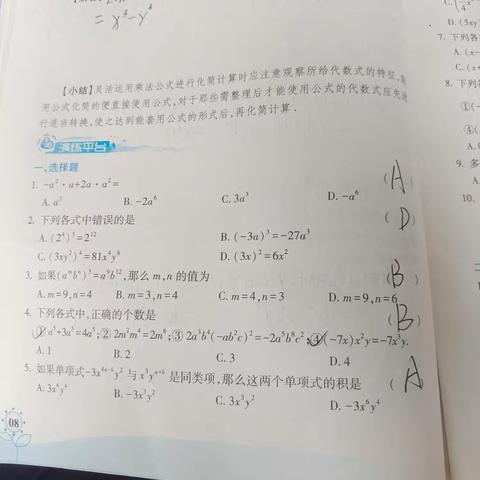 = x³-y³
【小结】灵活运用乘法公式进行化简计算时应注意观察所给代数式的特征,
用公式化简的便直接使用公式,对于那些需整理后才能使用公式的代数式应先进
行适当转换,使之达到能套用公式的形式后,再化简计算.
演练平台
一、选择题
1. -a²·a+2a·a²= (A)
A. a³ B. -2a⁶ C. 3a³ D. -a⁶
2. 下列各式中错误的是 (D)
A. (2⁴)³=2¹² B. (-3a)³=-27a³
C. (3xy²)⁴=81x⁴y⁸ D. (3x)²=6x²
3. 如果(aᵐbⁿ)³=a⁹b¹²,那么m,n的值为 (B)
A. m=9,n=4 B. m=3,n=4 C. m=4,n=3 D. m=9,n=6
4. 下列各式中,正确的个数是 (B)
①a⁵+3a⁵=4a⁵;②2m²m⁴=2m⁸;③2a³b⁴(-ab²c)²=-2a⁵b⁸c²;④(-7x)x²y=-7x³y.
A. 1 B. 2 C. 3 D. 4
5. 如果单项式-3x⁴ᵃ⁻ᵇy²与x³yᵃ⁺ᵇ是同类项,那么这两个单项式的积是 (A)
A. 3x⁶y⁴ B. -3x³y² C. 3x³y² D. -3x⁶y⁴
08
D. (5xy
7. 下列各
A. (x-
C. (x
8. 下列
①(-
④(
A.
9. 多
10.